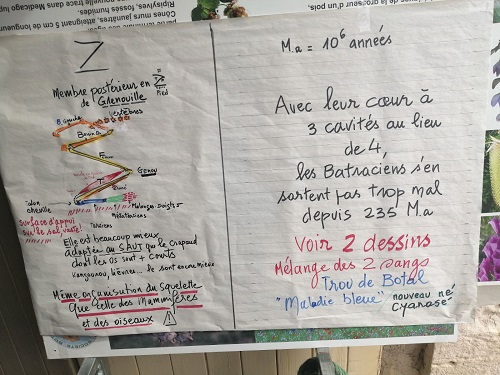 Cônes murs sanders, atteignant 5 cm de longueur
Ripisylves, fossés humides.
Z
Membre postérieur en Z
de Grenouille
Pied
vertèbres
Bassin
Fémur
Genou
T
Talon
cheville
Tarsiens
Métatarsiens
Surface d'appui
sur le sol vaste!
Elle est beaucoup mieux
adaptée au SAUT que le crapaud
dont les os sont + courts
Kangourou, lièvre... le sont encore mieux
Même organisation du Squelette
que celle des Mammifères
et des oiseaux !
M.a = 10⁶ années
Avec leur cœur à
3 cavités au lieu
de 4,
les Batraciens s'en
sortent pas trop mal
depuis 235 M.a
Voir 2 dessins
Mélange des 2 sangs
Trou de Botal
"Maladie bleue" nouveau né
cyanosé